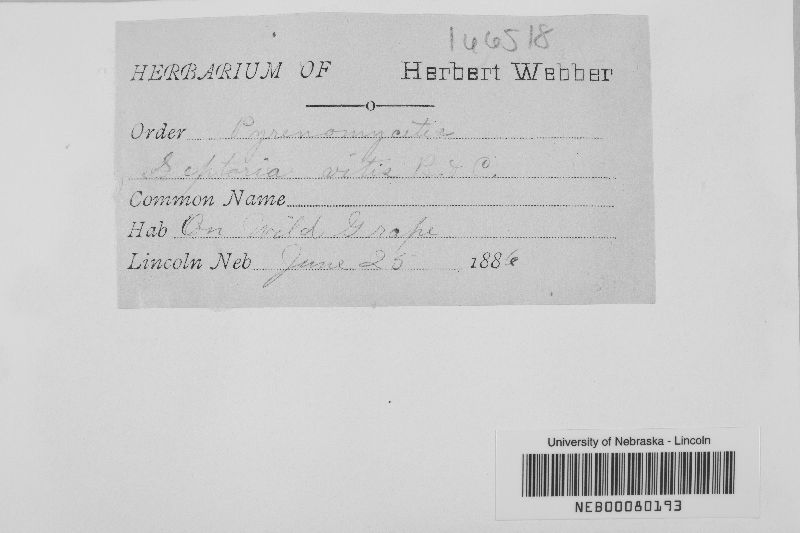 166518
HERBARIUM OF Herbert Webber
Order Pyrenomycetes
Septoria vitis B. & C.
Common Name
Hab On Wild Grape
Lincoln Neb June 25 1886
University of Nebraska - Lincoln
NEB00080193